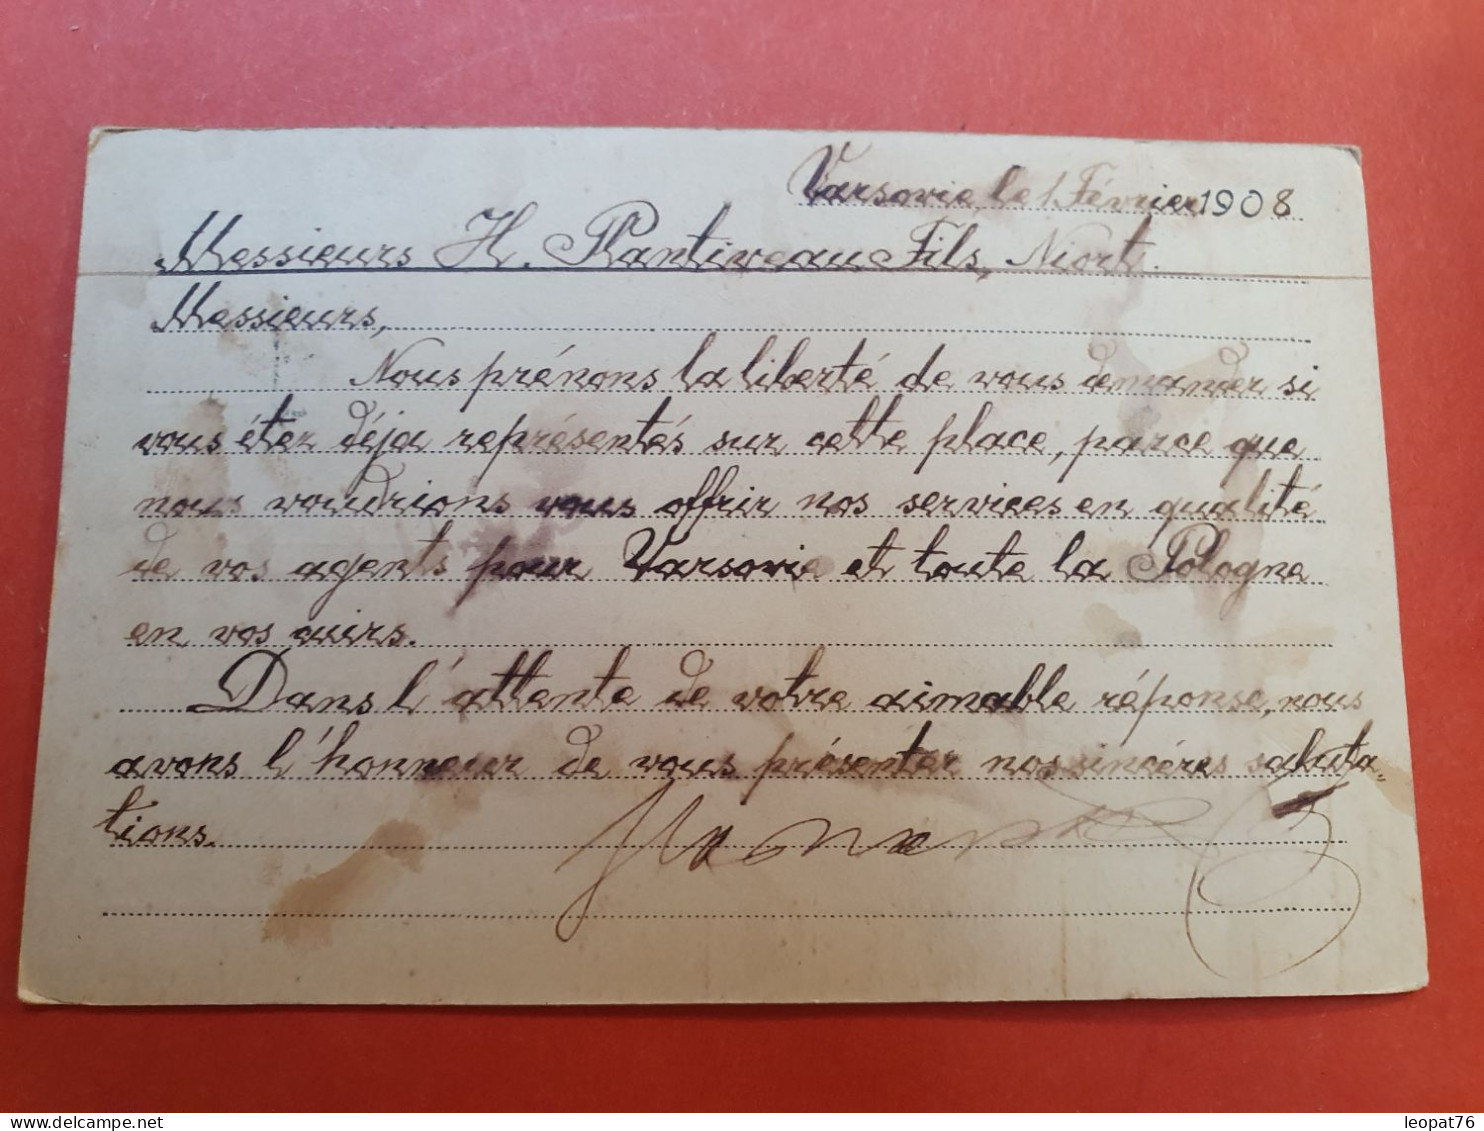 Varsovie, le 1 Février 1908
Messieurs H. Plantiveau Fils, Niort.
Messieurs,
Nous prénons la liberté de vous demander si
vous éter déja représentés sur cette place, parce que
nous voudrions vous offrir nos services en qualité
de vos agents pour Varsovie et toute la Pologne
en vos cuirs.
Dans l'attente de votre aimable réponse, nous
avons l'honneur de vous présenter nos sincéres saluta-
tions.
leopat76